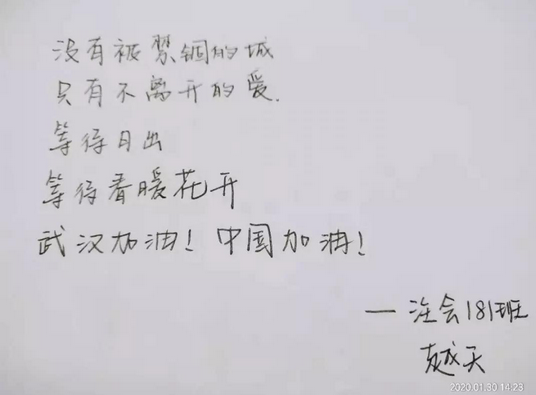 没有被禁锢的城
只有不离开的爱.
等待日出
等待春暖花开
武汉加油！中国加油！
— 注会181班
越天
2020.01.30 14:23